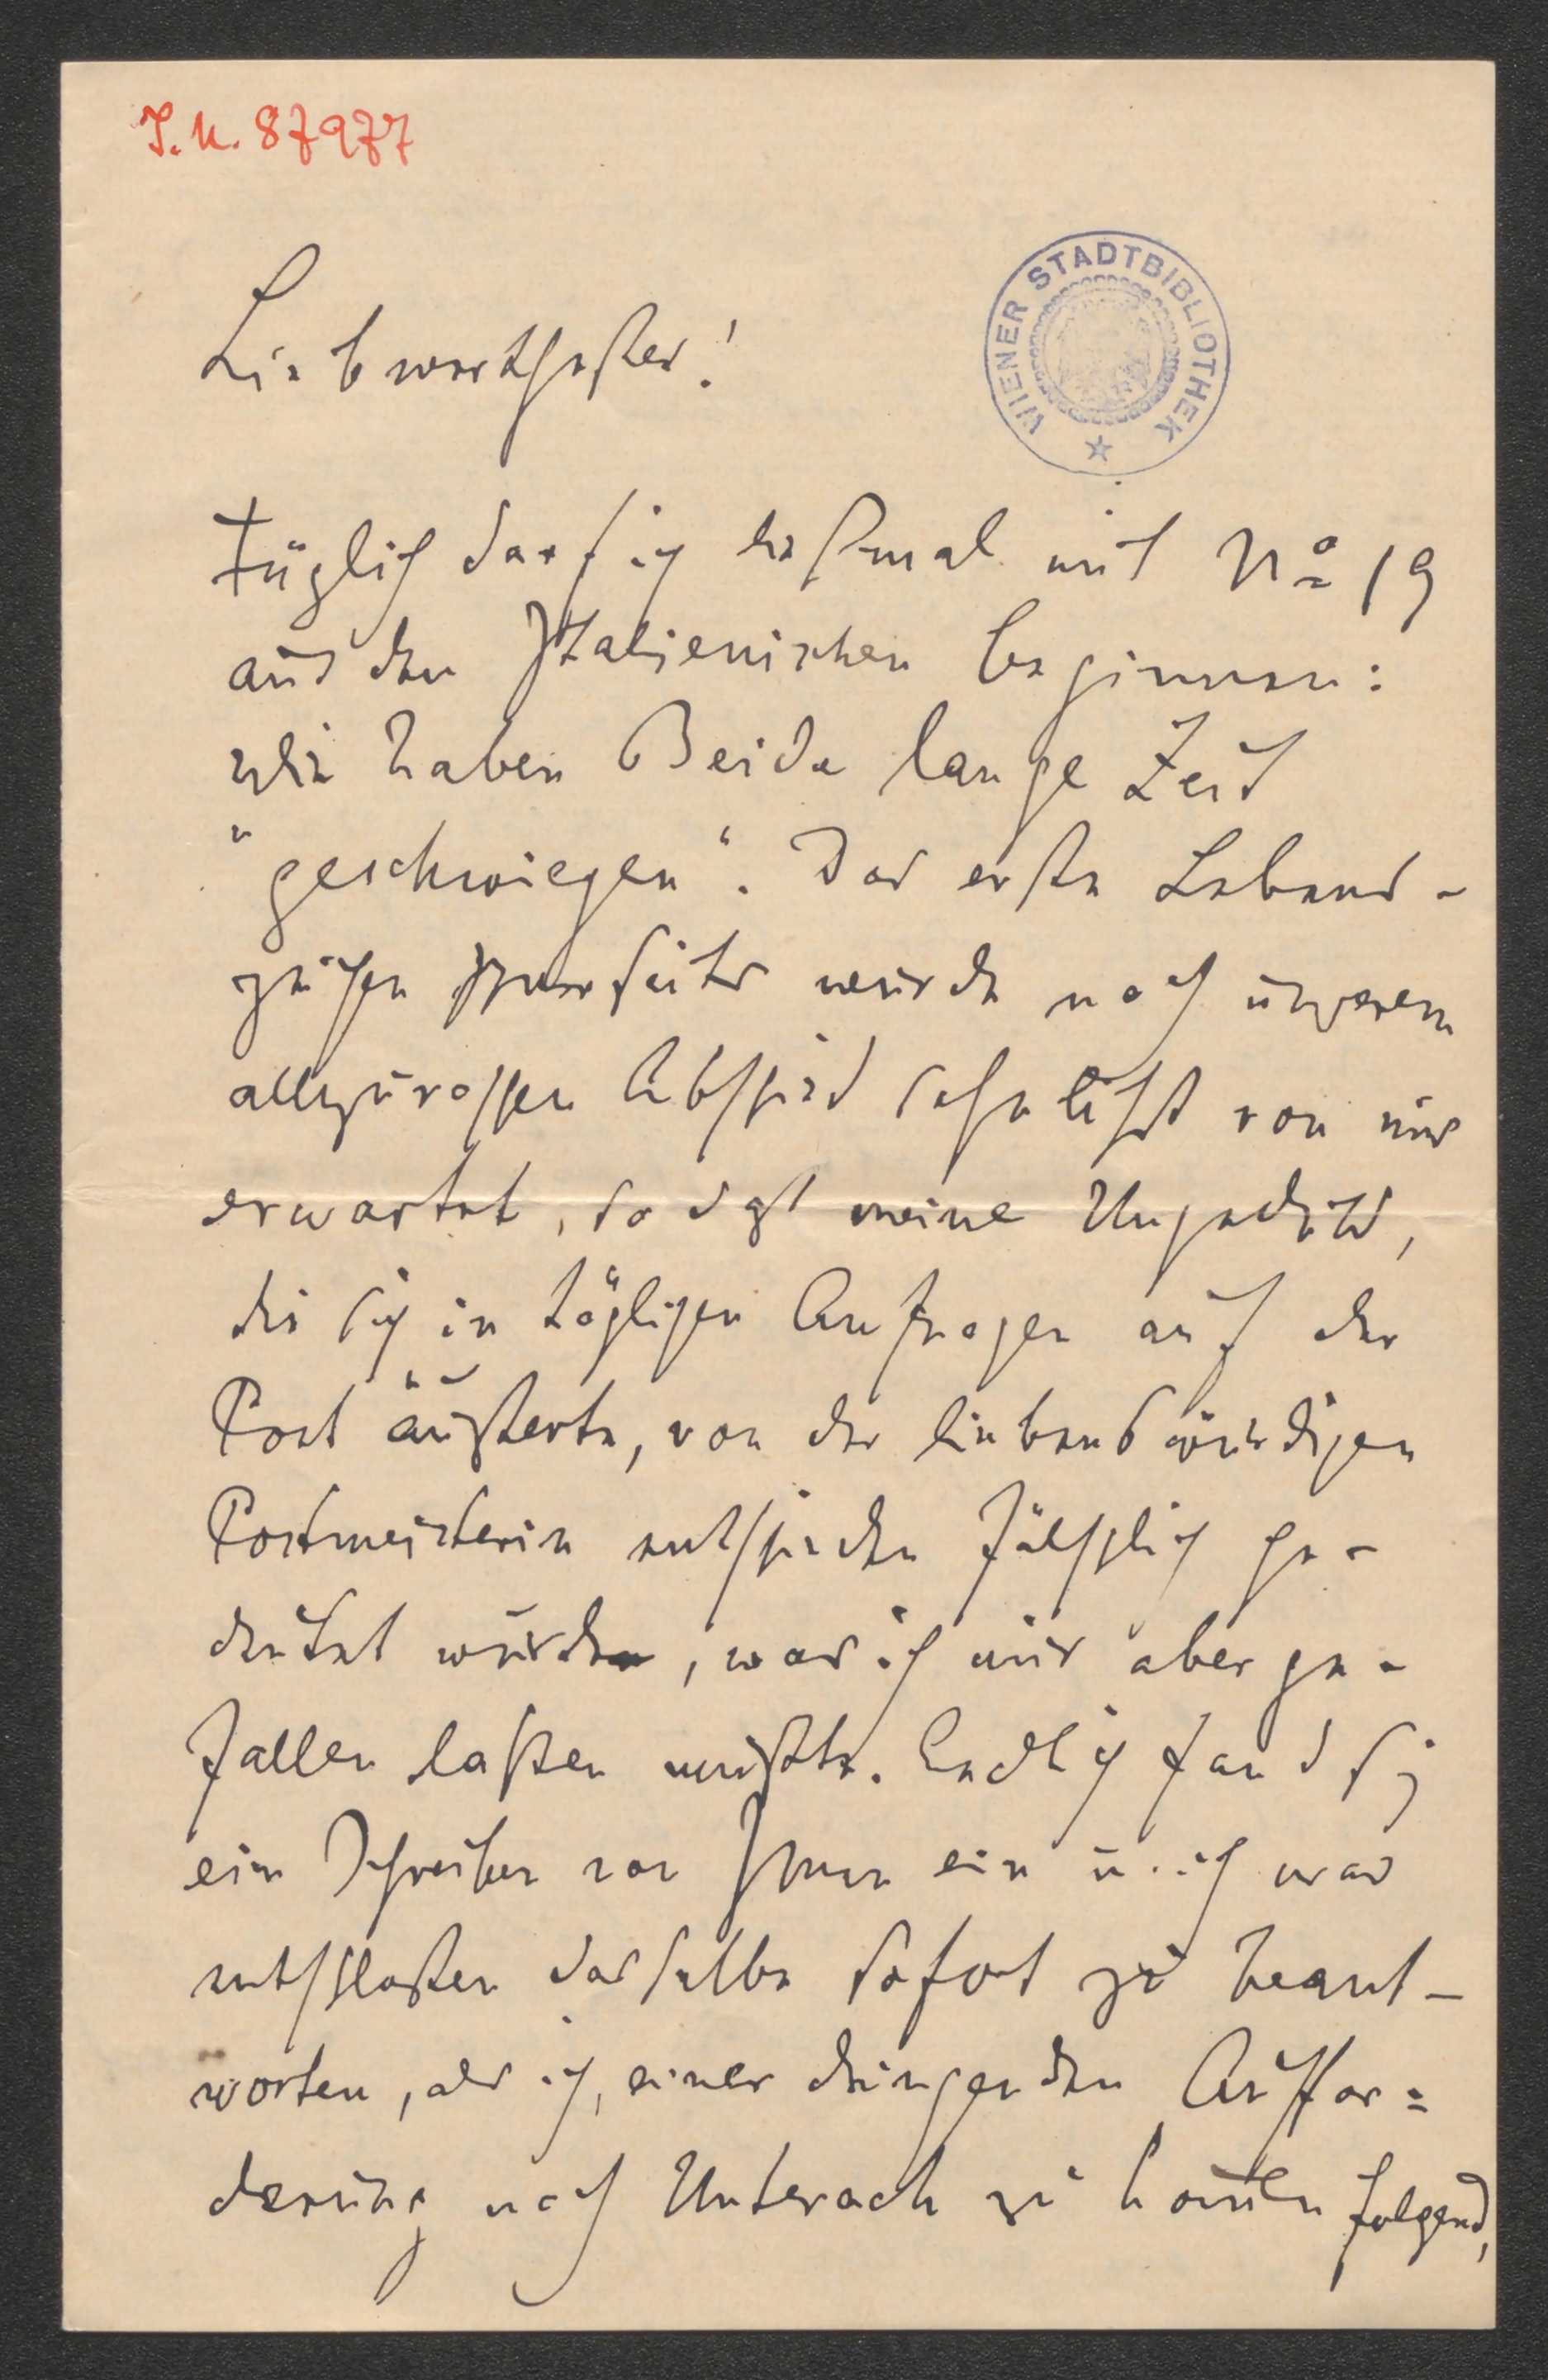 I.N. 87977
WIENER STADTBIBLIOTHEK
Liebwerthester!
Füglich darf ich dießmal mit No 19
aus den Italienischen beginnen:
Wir haben Beide lange Zeit
"geschwiegen". Das erste Lebens-
zeichen Ihrerseits wurde nach unserem
allzuraschen Abschied sehnlichst von mir
erwartet, so daß meine Ungeduld,
die sich in täglichen Anfragen auf der
Post äußerte, von der liebenswürdigen
Postmeisterin entschieden fälschlich ge-
deutet wurde, was ich mir aber ge-
fallen laßen mußte. Endlich fand sich
ein Schreiben von Ihnen ein u. ich war
entschloßen dasselbe sofort zu beant-
worten, als ich, einer dringenden Auffor=
derung nach Unterach zu kommen folgend,